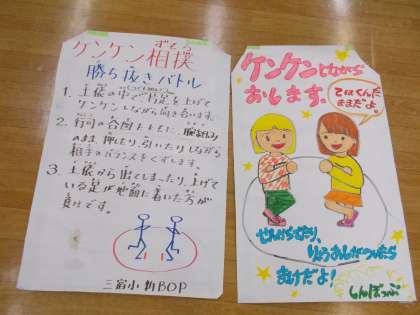 ケンケン相撲
ずもう
勝ち抜きバトル
1. 土俵の中で片足を上げて
ケンケンしながら向き合います。
2. 行司の合図とともに、腕組みの
まま押したり、引いたりしながら
相手のバランスをくずします。
3. 土俵から出てしまったり、上げて
いる足が地面に着いた方が
負けです。
三宿小新BOP
ケンケンしながら
おします。
てはくんだ
ままだよ
せんからでたり、
りょうあしがついたら
まけだよ!
しんぼっぷ